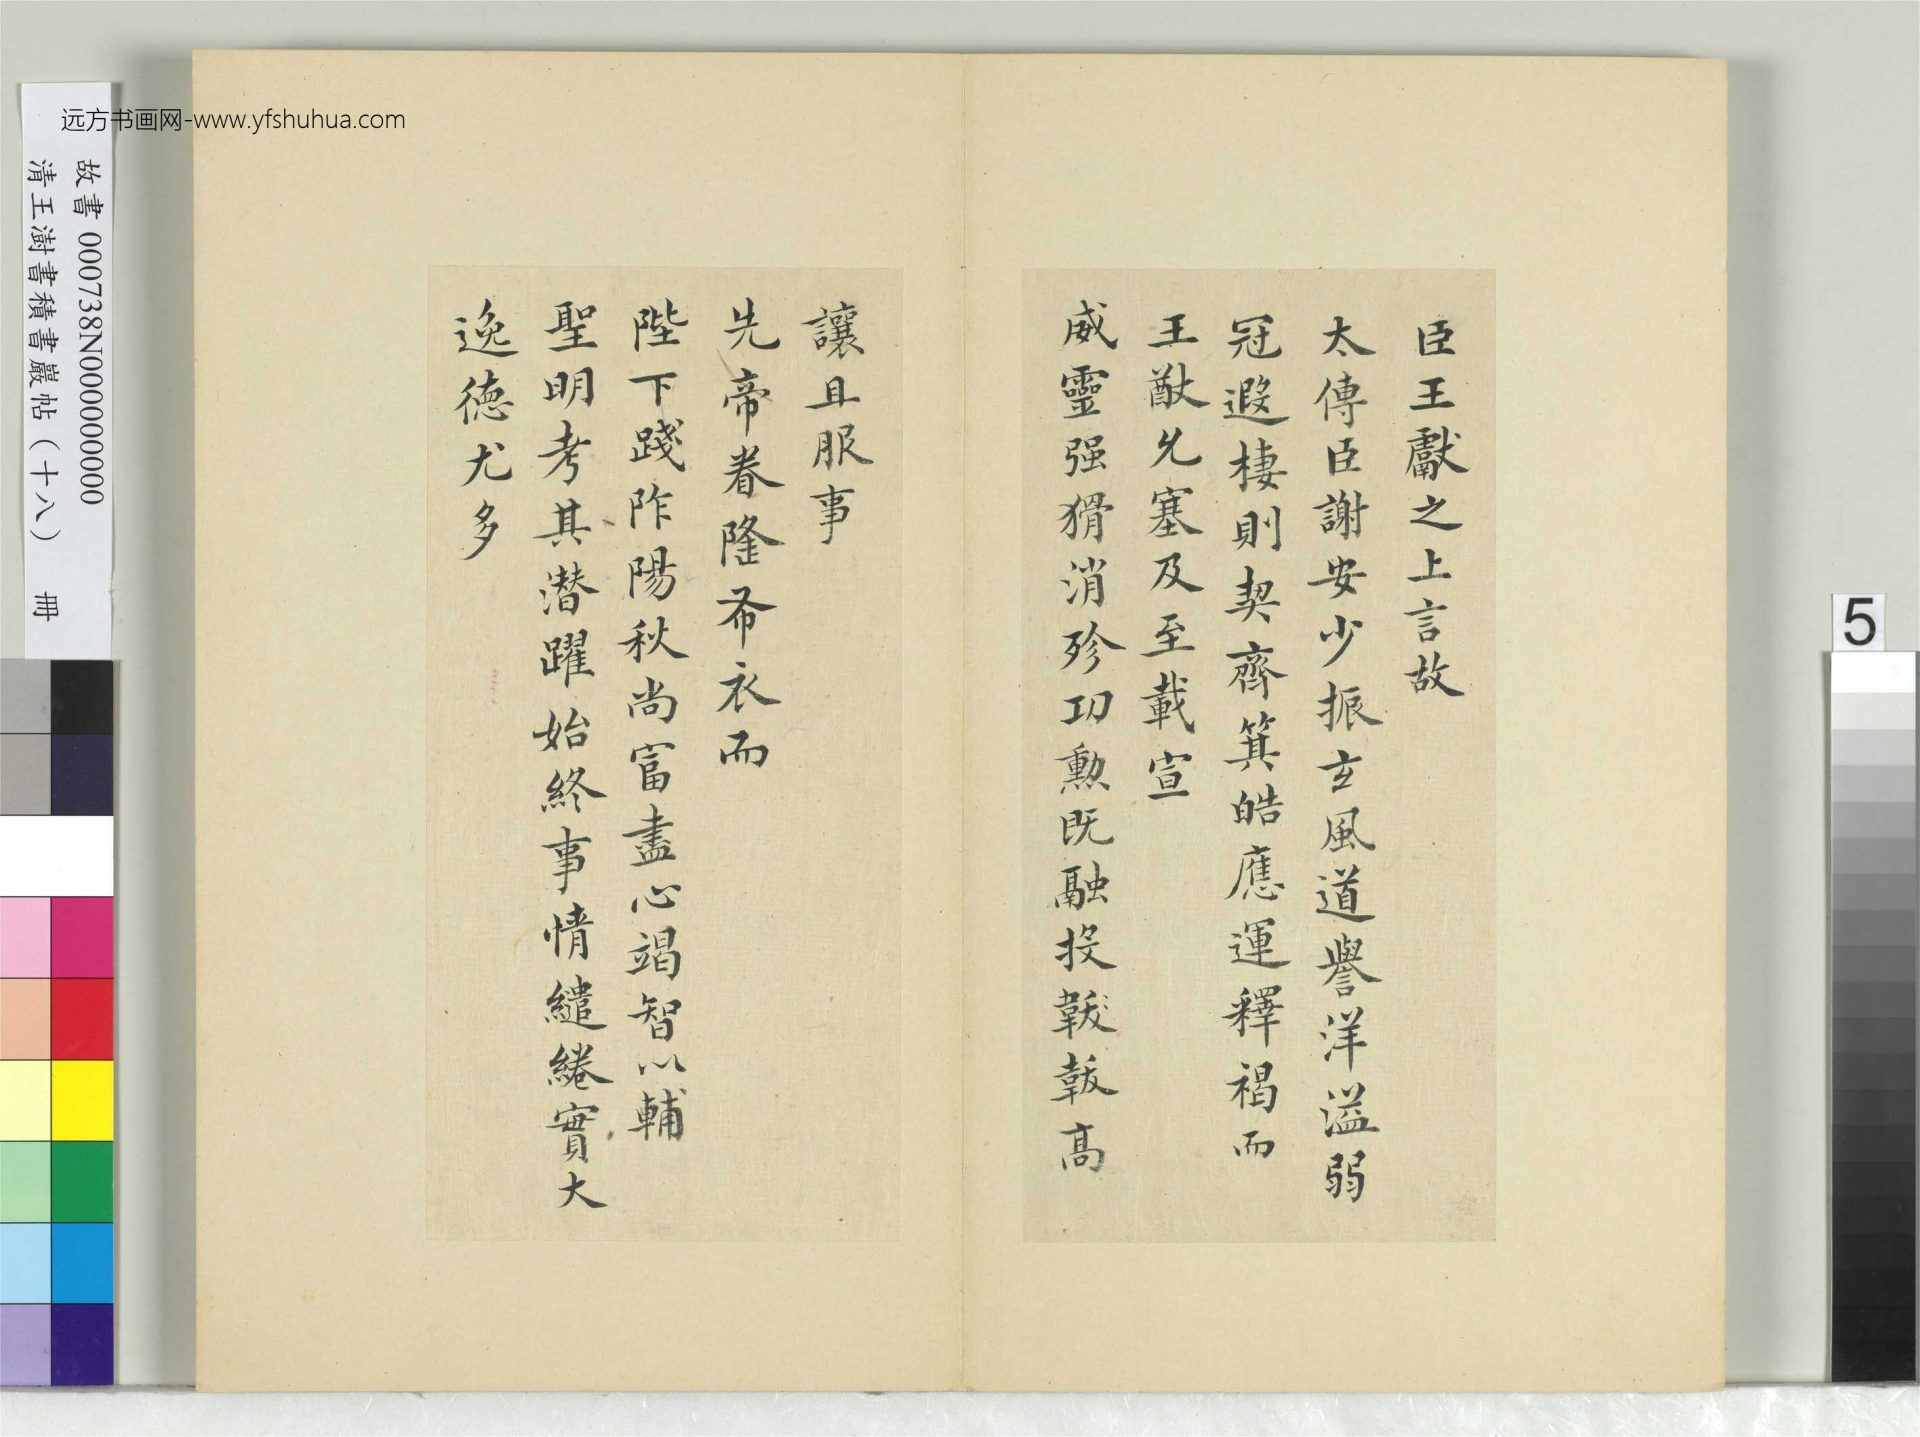 臣王獻之上言故
太傅臣謝安少振玄風道譽洋溢弱
冠遐棲則契齊箕皓應運釋褐而
王猷允塞及至載宣
威靈强猾消殄功勲既融投韍高
讓且服事
先帝眷隆布衣而
陛下踐阼陽秋尚富盡心竭智以輔
聖明考其潛躍始終事情繾綣實大
逸德尤多
远方书画网-www.yfshuhua.com
故書 000738N000000000
清王澍書積書巖帖（十八） 冊
5